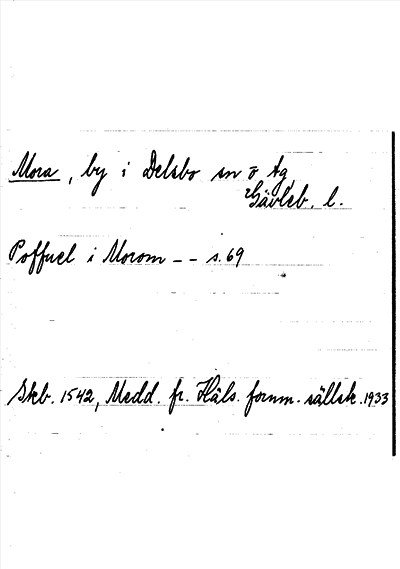 Mora, by i Delsbo sn o tg
Gävleb. l.
Poffuel i Morom -- s. 69
Skb. 1542, Medd. fr. Häls. fornm. sällsk. 1933